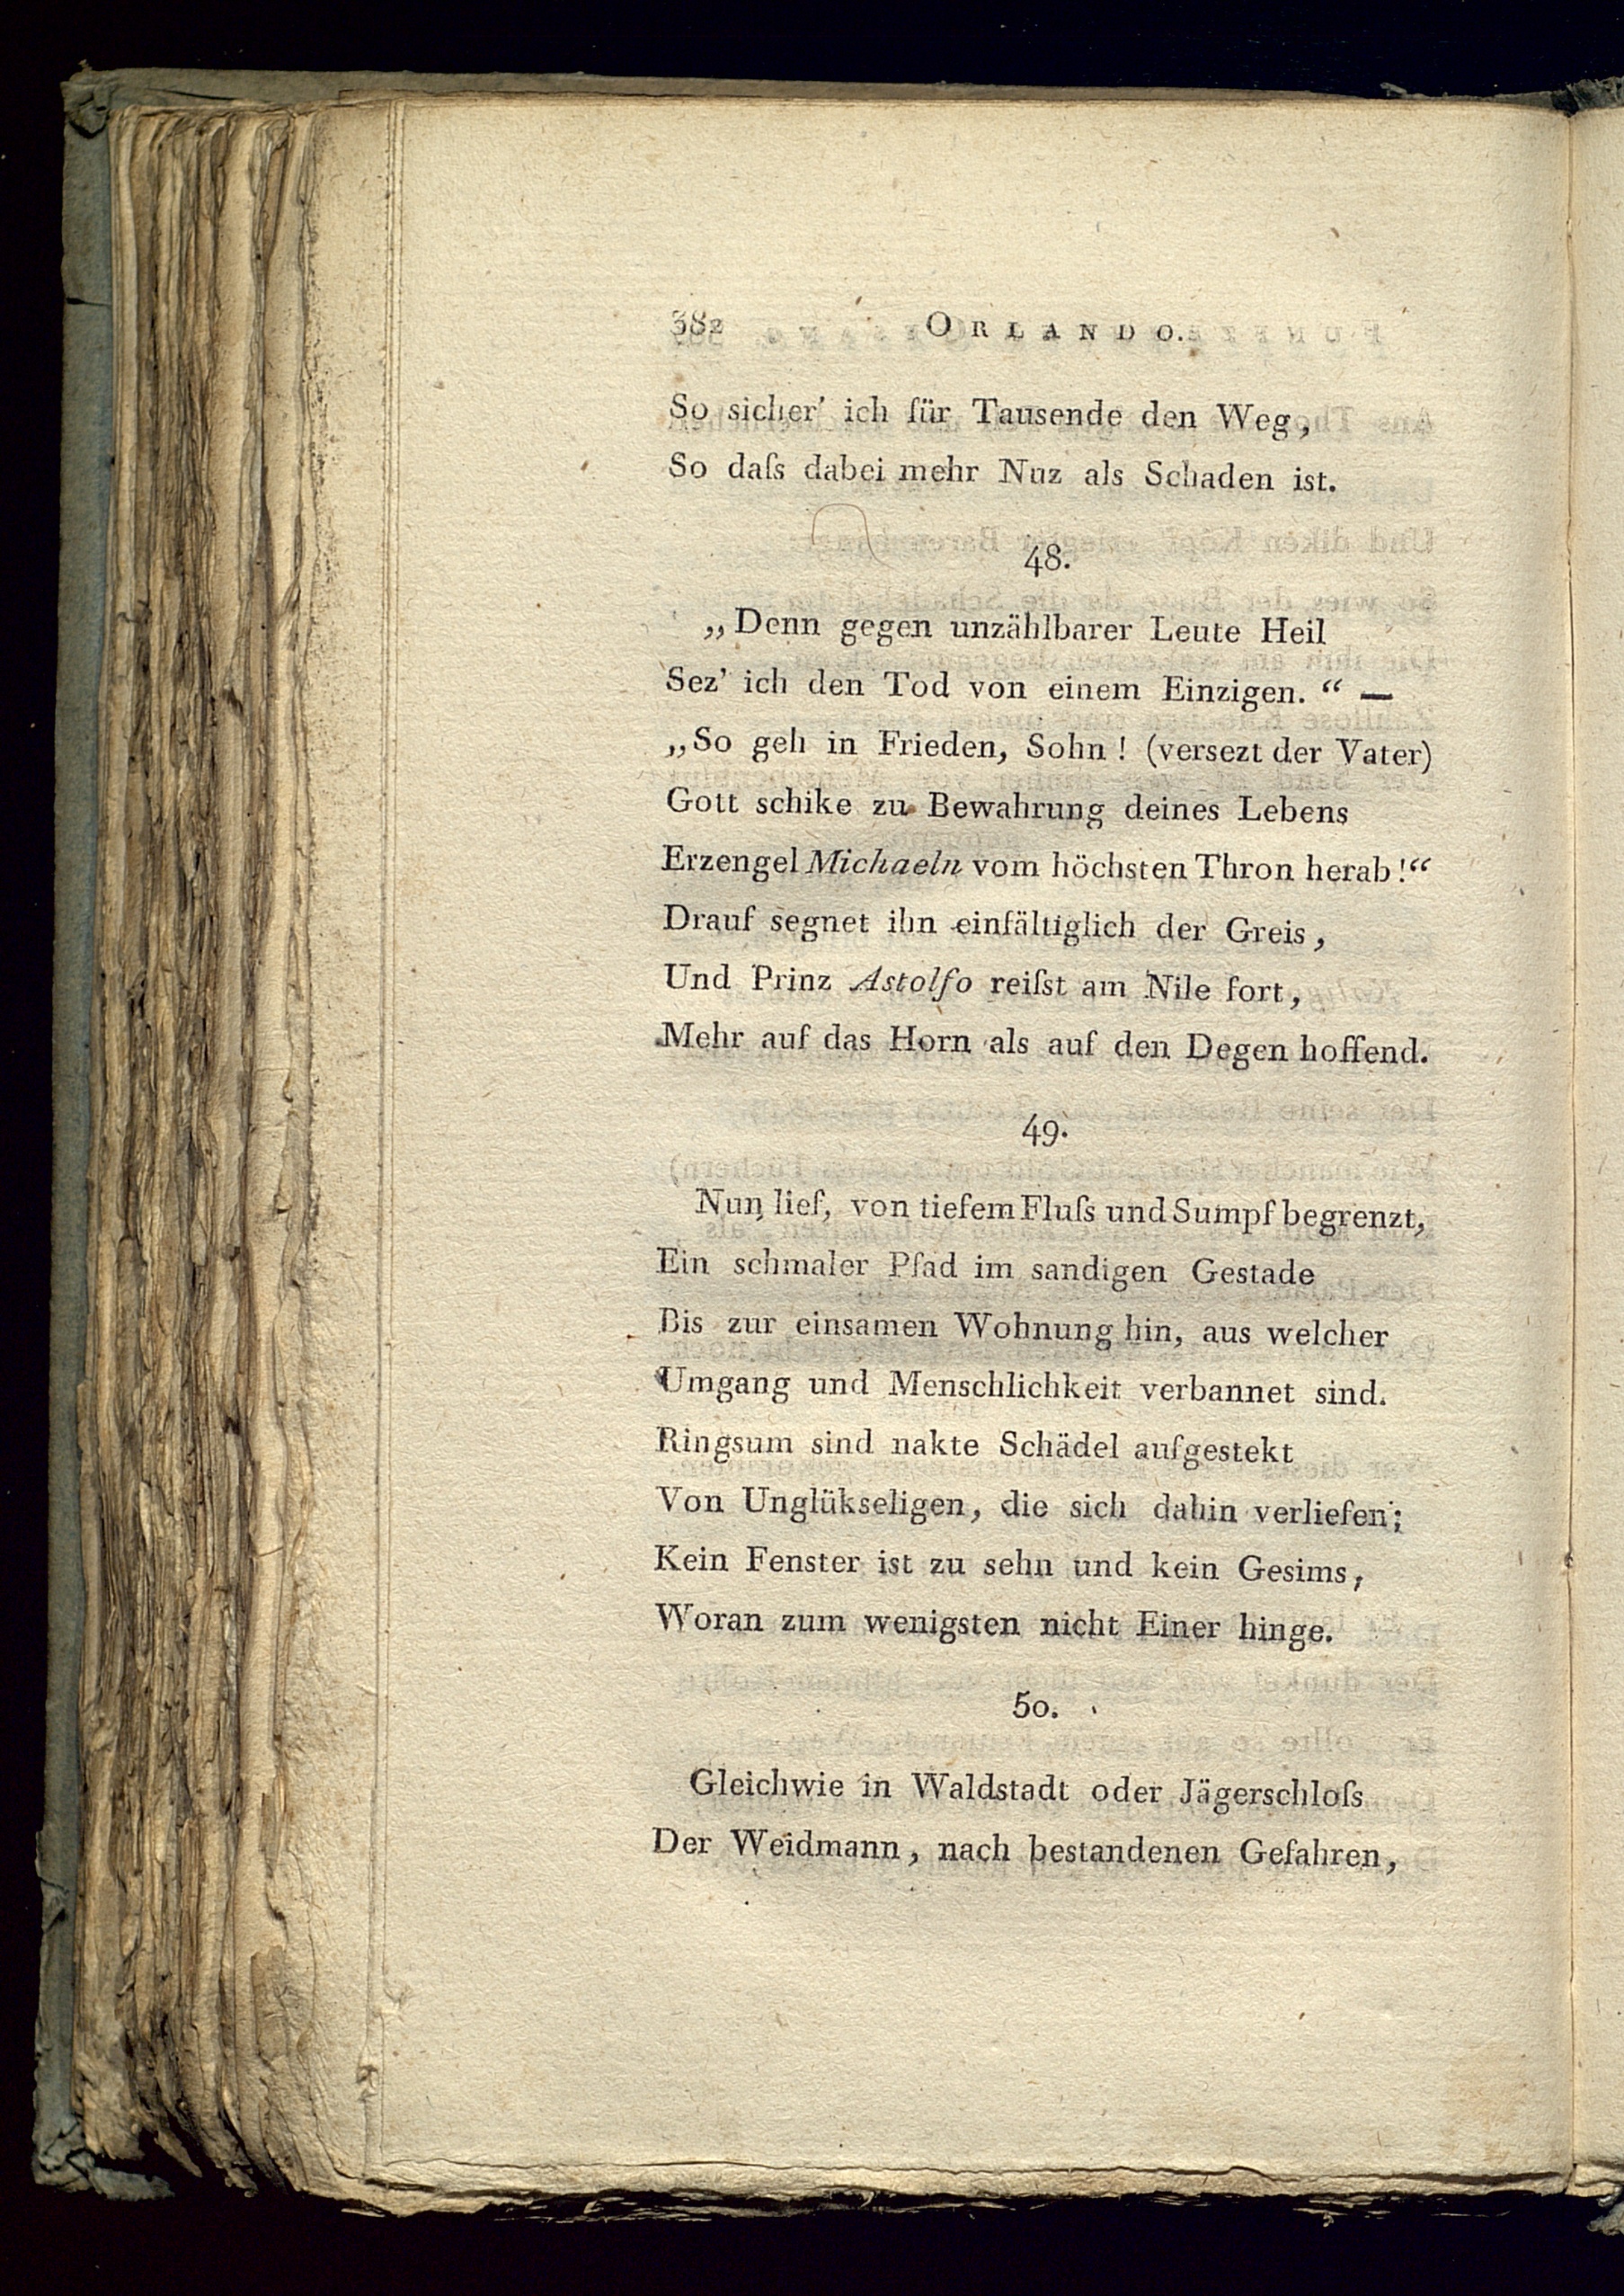 382 ORLANDO.
So sicher' ich für Tausende den Weg,
So daſs dabei mehr Nuz als Schaden ist.
48.
„Denn gegen unzählbarer Leute Heil
Sez' ich den Tod von einem Einzigen. “ —
„So geh in Frieden, Sohn! (versezt der Vater)
Gott schike zu Bewahrung deines Lebens
Erzengel Michaeln vom höchsten Thron herab!“
Drauf segnet ihn einfältiglich der Greis,
Und Prinz Astolfo reiſst am Nile fort,
Mehr auf das Horn als auf den Degen hoffend.
49.
Nun lief, von tiefem Fluſs und Sumpf begrenzt,
Ein schmaler Pfad im sandigen Gestade
Bis zur einsamen Wohnung hin, aus welcher
Umgang und Menschlichkeit verbannet sind.
Ringsum sind nakte Schädel aufgestekt
Von Unglükseligen, die sich dahin verliefen;
Kein Fenster ist zu sehn und kein Gesims,
Woran zum wenigsten nicht Einer hinge.
50.
Gleichwie in Waldstadt oder Jägerschloſs
Der Weidmann, nach bestandenen Gefahren,